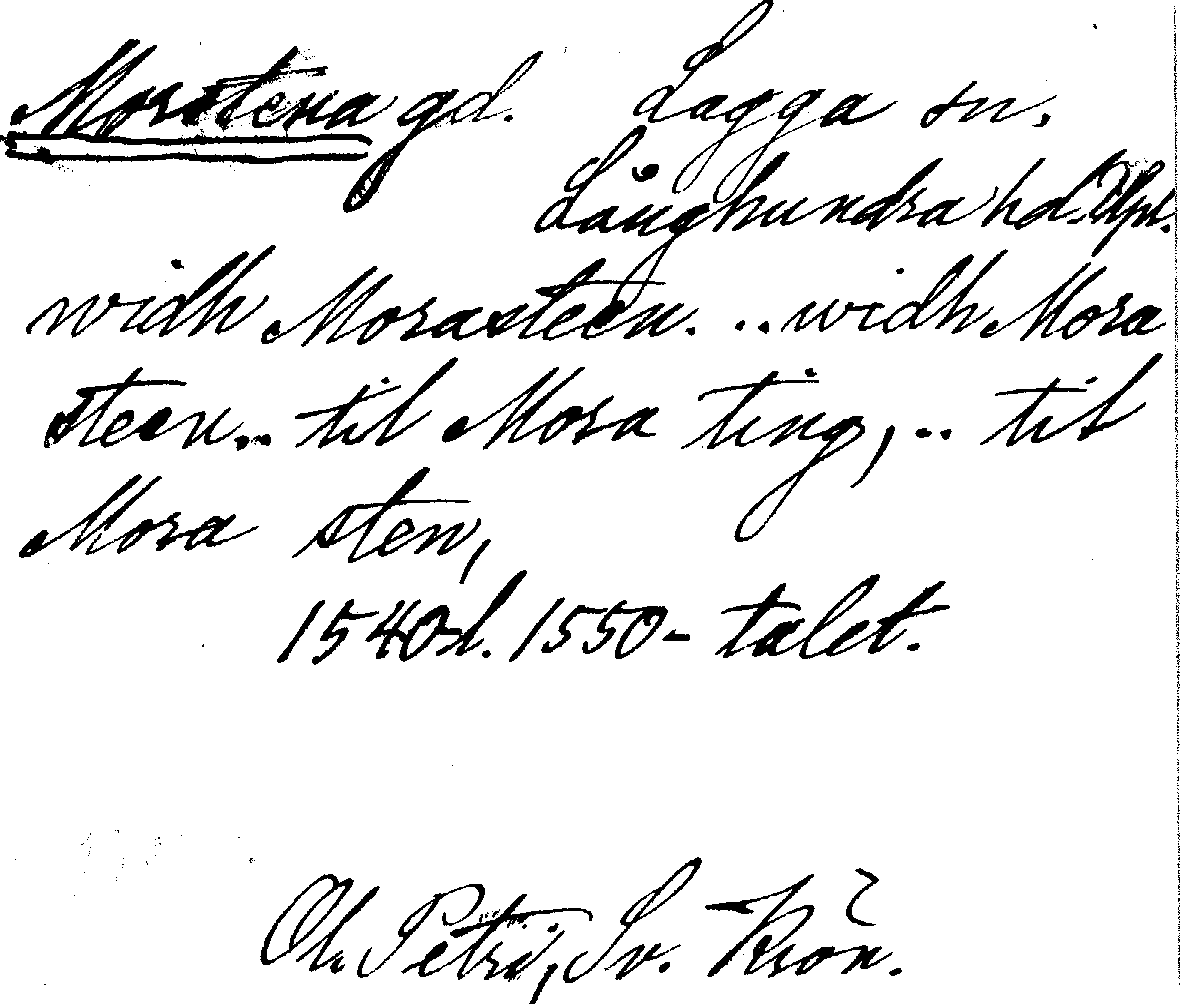 Morstena gd. Lagga sn.
Långhundra hd. Upl.
widh Morasteen. .. widh Mora
steen.. til Mora ting, .. til
Mora sten,
1540-l. 1550-talet.
Ol. Petri, Sv. Krön.